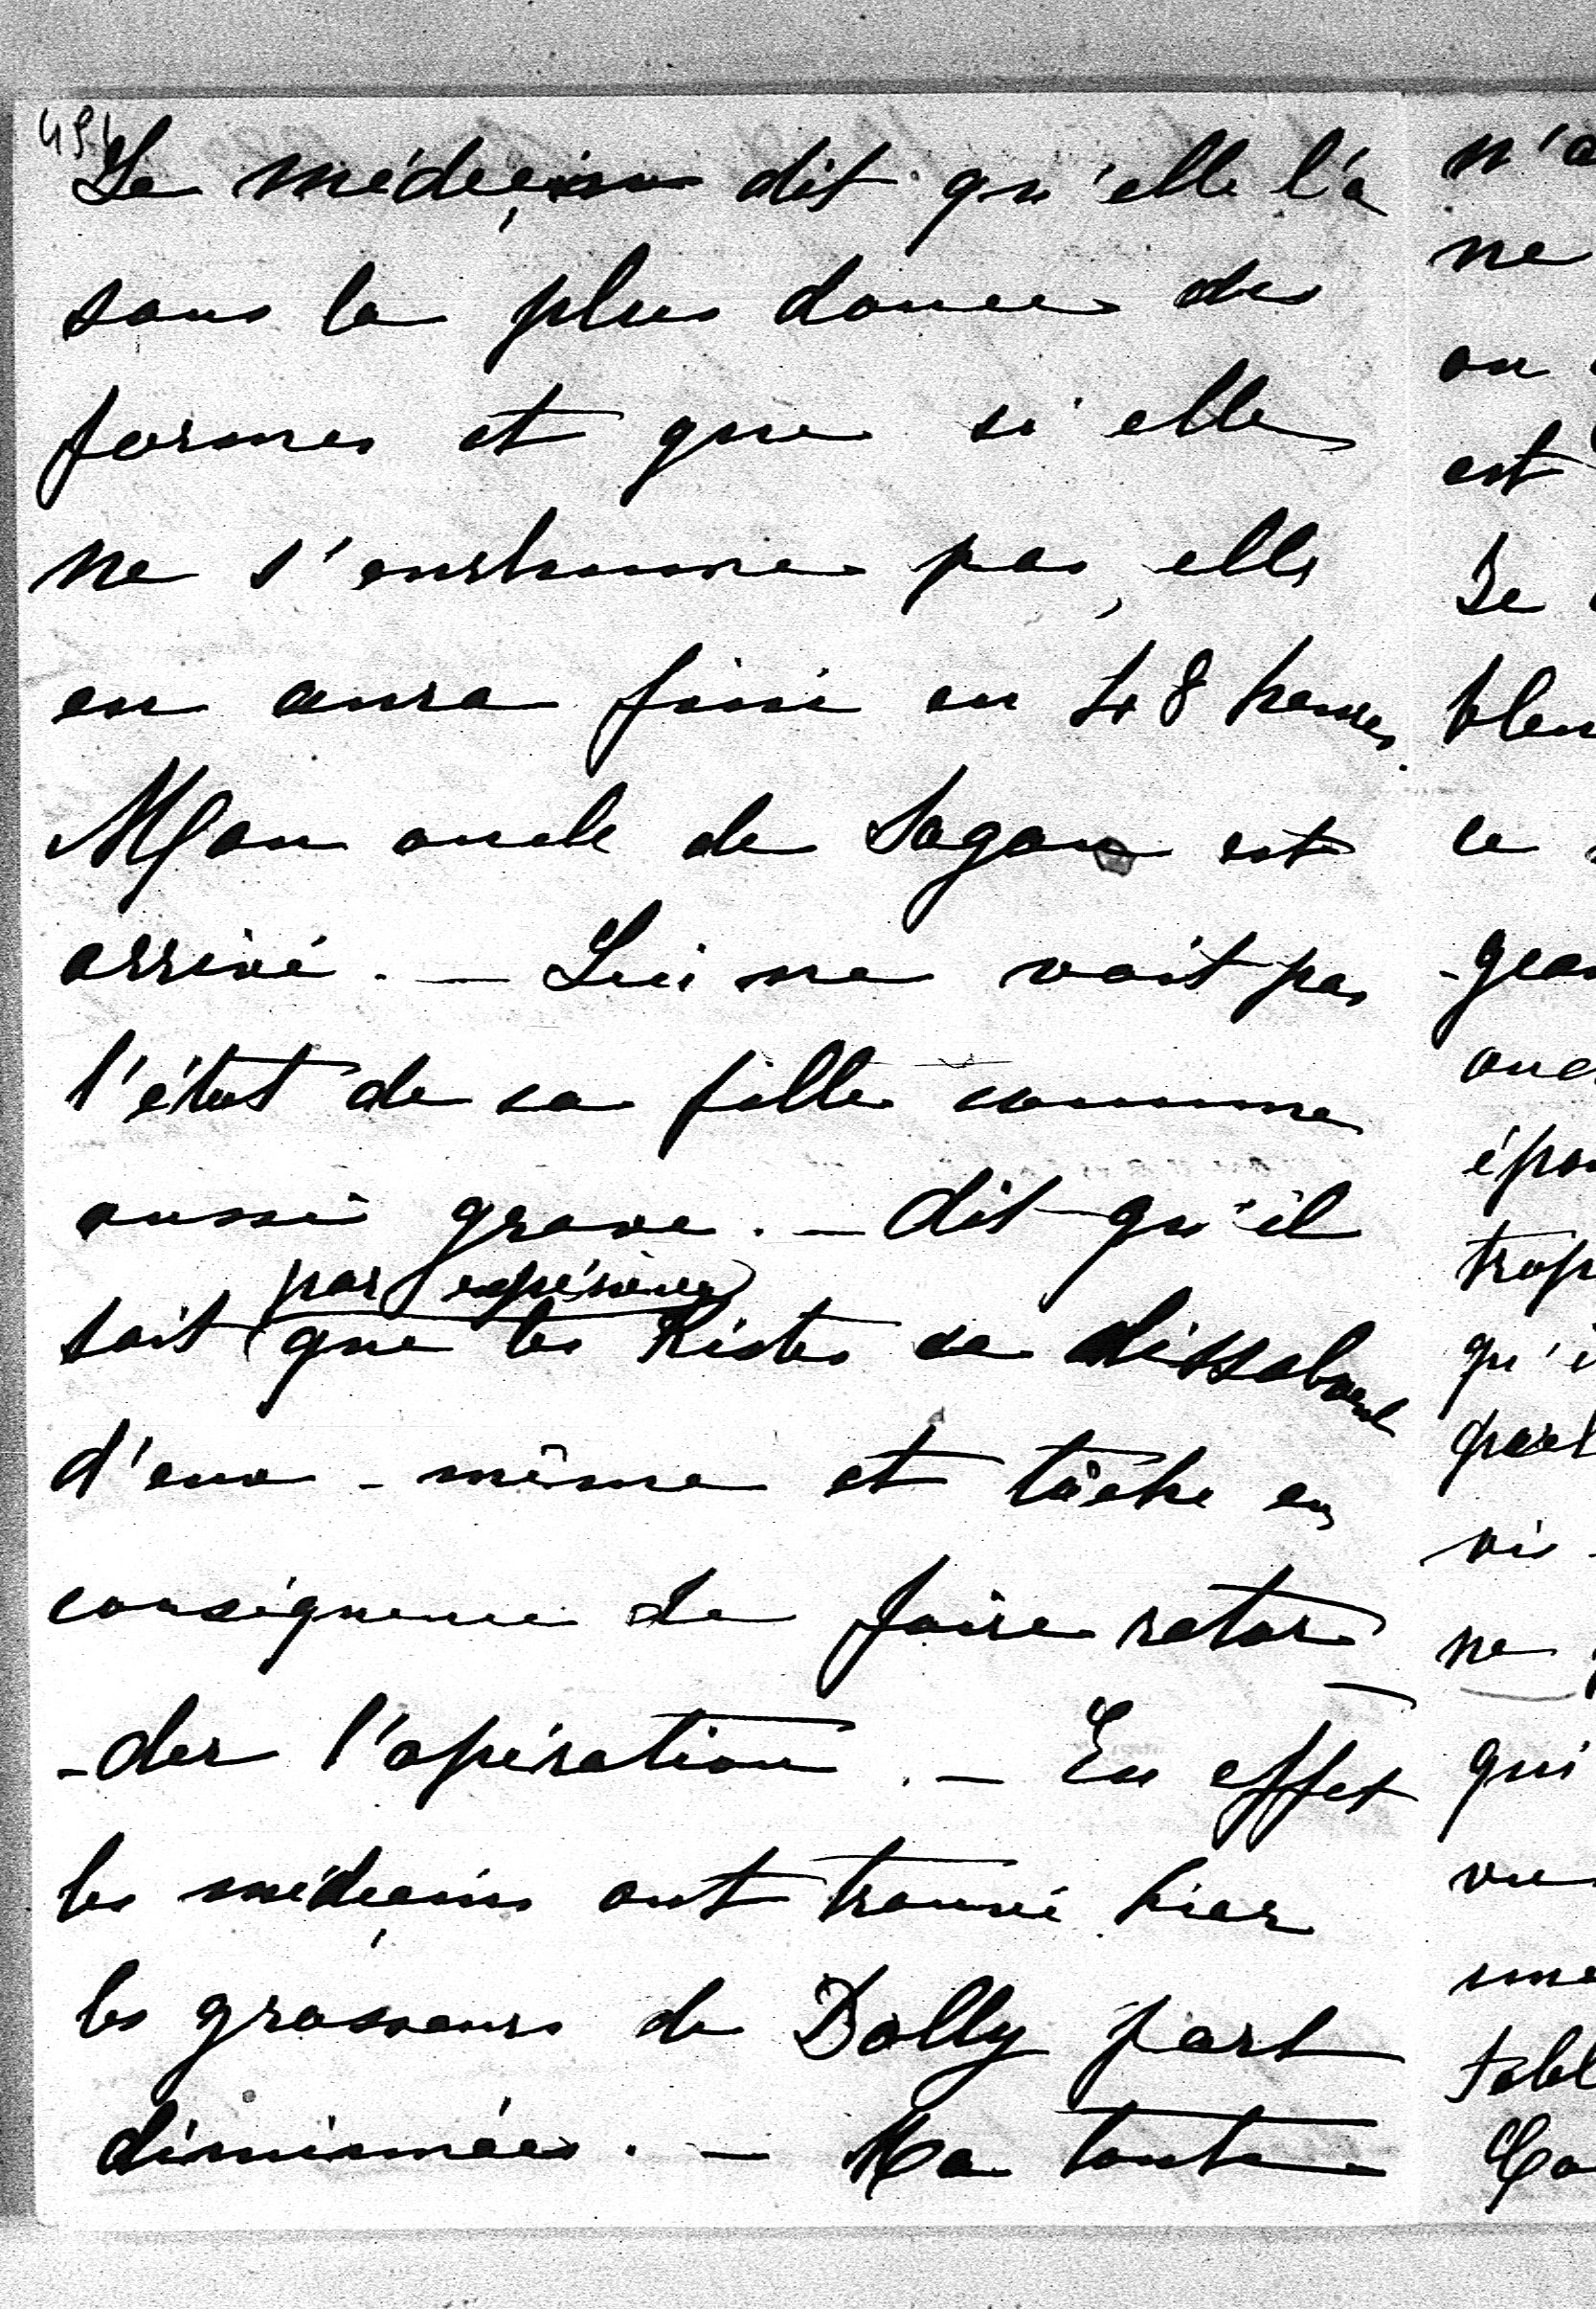 494
Le médeçin dit qu'elle l'a
sous la plus douce des
formes et que si elle
ne s'enrhume pas, elle
en aura fini en 48 heures.
Mon oncle de Sagan est
arrivé. — Lui ne voit pas
l'état de sa fille comme
aussi grave. — dit qu'il
par expérience
sait que les Kistes se dissolvent
d'eux-même et tâche en
conséquence de faire retar-
-der l'opération. — En effet
les médeçins ont trouvé hier
les grosseurs de Dolly fort
diminuées. — Ma tante
n'a
ne
on
est
De
bleu
ce
-gea
épou
trop
qu'i
parl
vis-
ne
qui
une
tabl